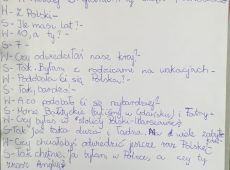 W- Z Polski-
S- Ile masz lat?-
W- 10, a ty?-
S- 7-
W- Czy odwiedziłaś nasz kraj?-
S- Tak. Byłam z rodzicami na wakacjach-
W- Podobała ci się Polska?-
S- Tak, bardzo-
W- A co podobało ci się najbardziej?
S- Morze Bałtyckie w Gdańsku i
W- Czy byłaś w stolicy Polski-Warszawie?
S- Tak jest taka duża i ładna. w
W- Czy chciałabyś odwiedzić jeszcze raz Polskę?
S- Tak chętnie, ja byłam w Polsce, a czy ty